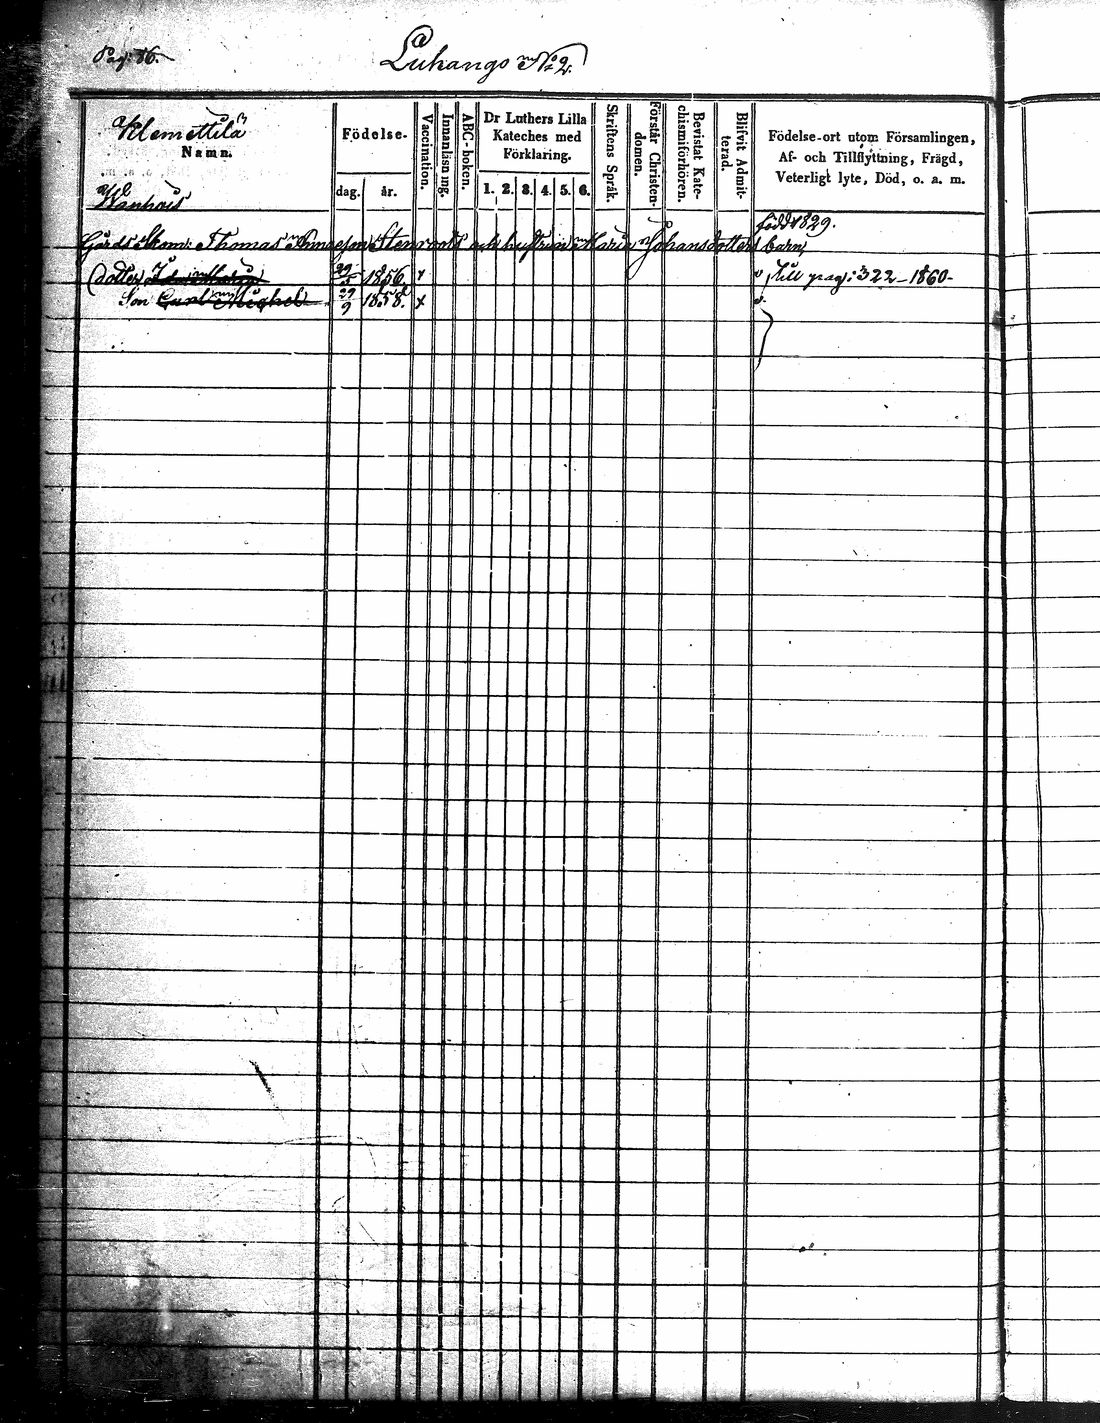 Pag: 86.
Luhango No 2.
Klemettilä
Namn.
Wanhois
Födelse-
dag.
år.
Vaccination.
Innanläsning.
ABC-boken.
Dr Luthers Lilla
Kateches med
Förklaring.
1. 2. 3. 4. 5. 6.
Skriftens Språk.
Förstår Christen-
domen.
Bevistat Kate-
chismiförhören.
Blifvit Admit-
terad.
Födelse-ort utom Församlingen,
Af- och Tillflyttning, Frägd,
Veterligt lyte, Död, o. a. m.
född 1829.
Gårds Skom: Thomas Stenroots och hustrun Maria Johansdotters barn,
dotter Maria 29/5 1856. till pag: 322 - 1860-
Son Carl Michel 29/9 1858.